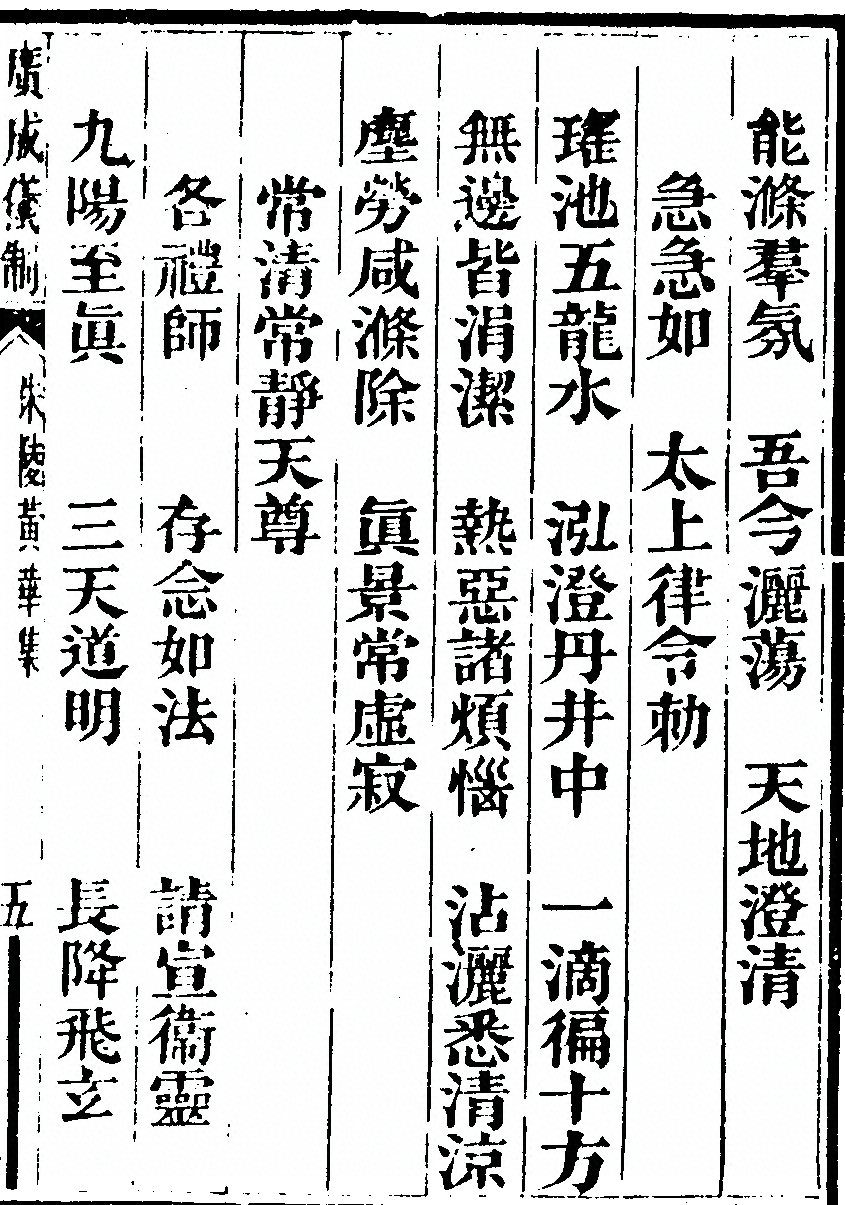 能滌羣氛　吾今灑蕩　天地澄清
急急如　太上律令勅
瑤池五龍水　泓澄丹井中　一滴徧十方
無邊皆涓潔　熱惡諸煩惱　沾灑悉清涼
塵勞咸滌除　眞景常虛寂
常清常靜天尊
各禮師　存念如法　請宣衞靈
九陽至眞　三天道明　長降飛玄
廣成儀制　朱陵黃華集　五